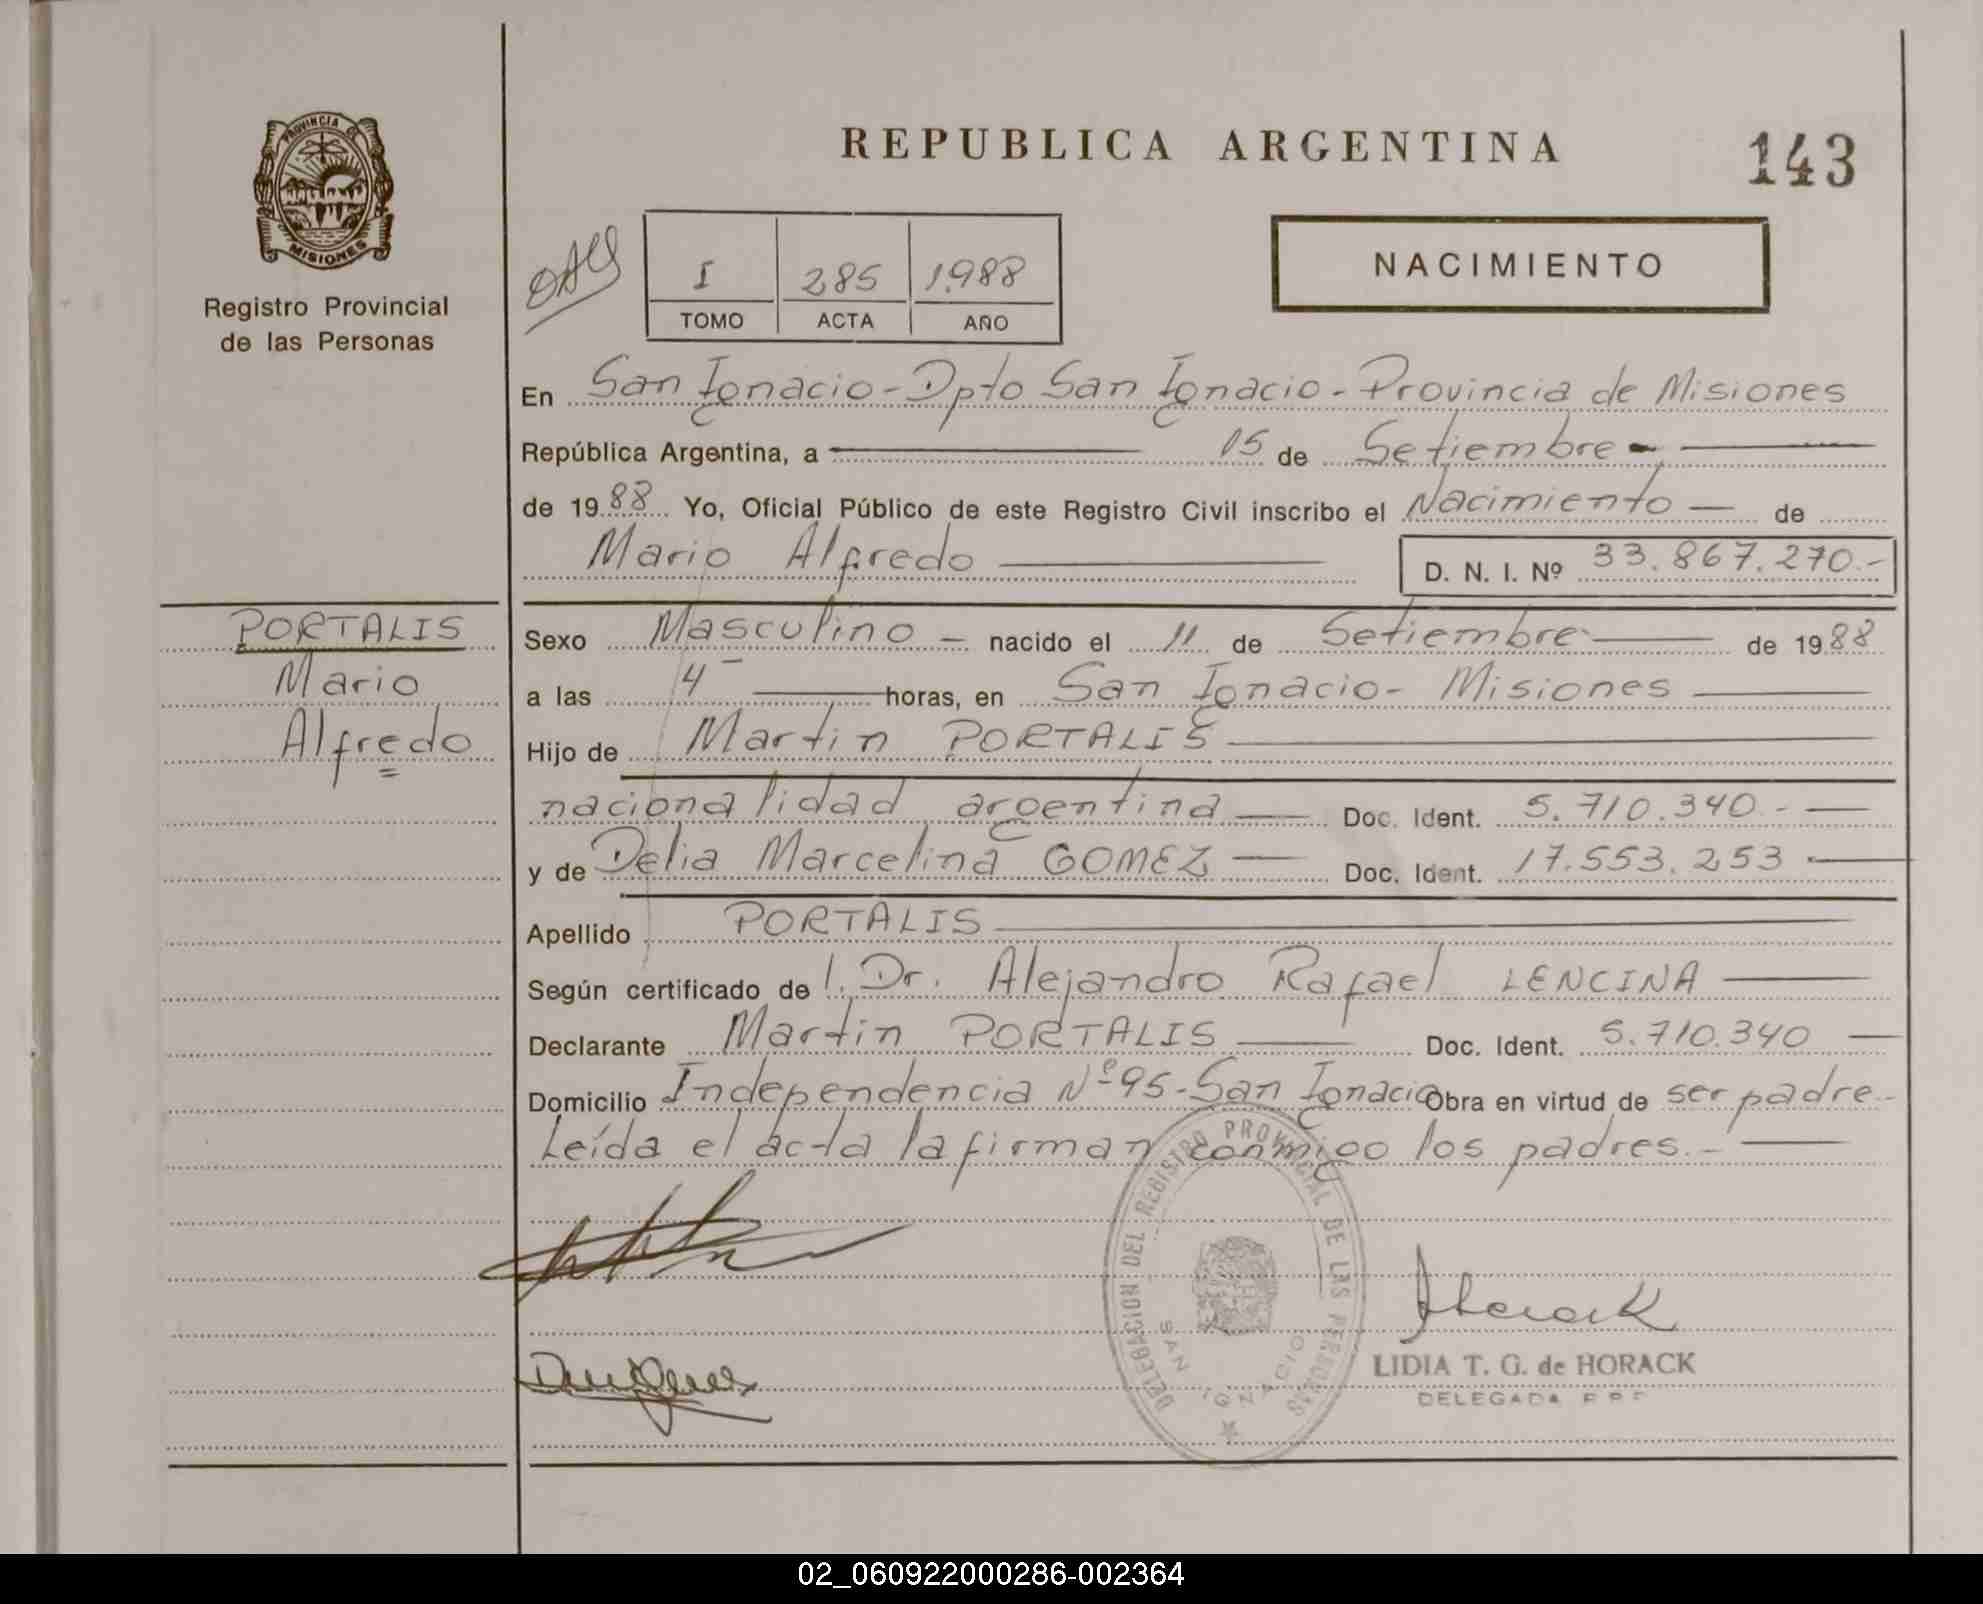 PROVINCIA DE
MISIONES
Registro Provincial
de las Personas
REPUBLICA ARGENTINA
143
I 285 1.988
TOMO ACTA AÑO
NACIMIENTO
En San Ignacio - Dpto San Ignacio - Provincia de Misiones
República Argentina, a 15 de Setiembre -
de 1988 Yo, Oficial Público de este Registro Civil inscribo el Nacimiento — de
Mario Alfredo D. N. I. Nº 33.867.270.-
PORTALIS
Mario
Alfredo
Sexo Masculino - nacido el 11 de Setiembre de 1988
a las 4 horas, en San Ignacio - Misiones
Hijo de Martin PORTALIS
nacionalidad argentina Doc. Ident. 5.710.340.-
y de Delia Marcelina GOMEZ Doc. Ident. 17.553.253
Apellido PORTALIS
Según certificado de l. Dr. Alejandro Rafael LENCINA
Declarante Martin PORTALIS Doc. Ident. 5.710.340
Domicilio Independencia Nº 95 - San Ignacio Obra en virtud de ser padre -
Leída el acta la firman conmigo los padres. -
DELEGACION DEL REGISTRO PROVINCIAL DE LAS PERSONAS
SAN IGNACIO
LIDIA T. G. de HORACK
DELEGADA
02_060922000286-002364